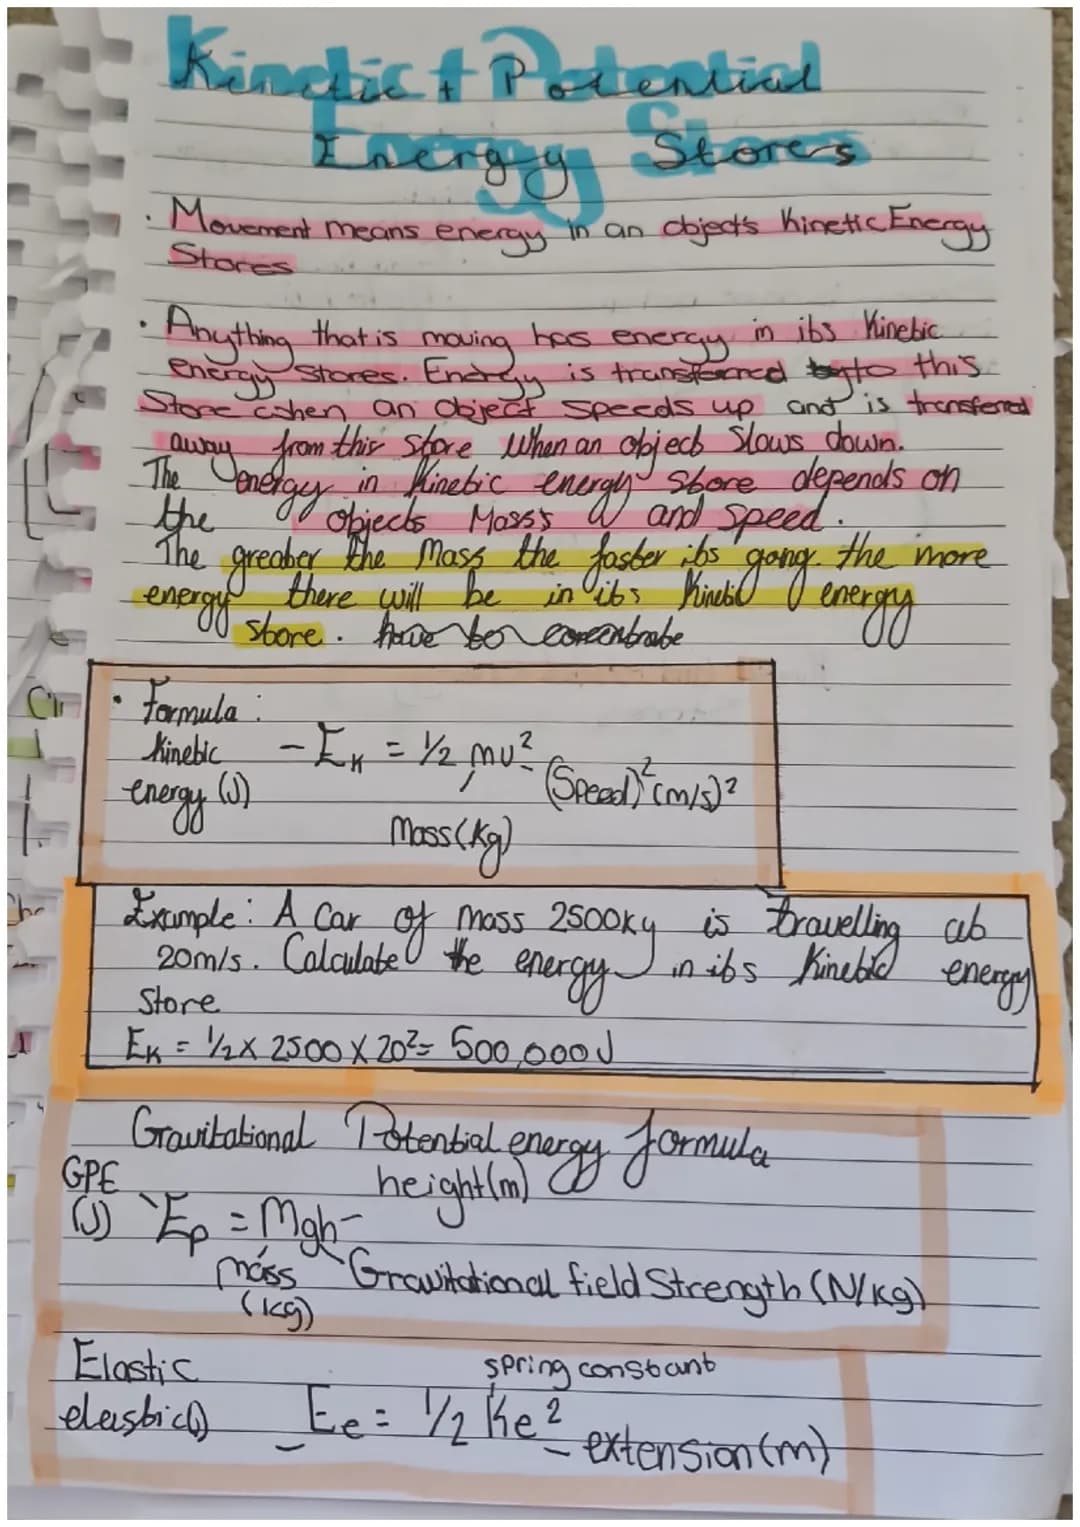 Kinetic + Potential
Energy Stores
· Movement means energy in an object's Kinetic Energy
Stores
· Anything that is moving has energy in its Kinetic
energy stores. Energy is transferred to this
Store when an object speeds up and is transferred
away from this store when an object slows down.
The energy in Kinetic energy store depends on
the objects Mass's and speed.
The greater the Mass the faster its going. the more
energy there will be in its Kinetic energy
store.
· Formula:
Kinetic - EK = 1/2 mv²
energy (J) (Speed)² (m/s)²
Mass (kg)
Example: A Car of mass 2500kg is travelling at
20m/s. Calculate the energy in its Kinetic energy
Store
EK = 1/2 x 2500 x 20² = 500,000J
Gravitational Potential energy formula
GPE height (m)
(J) Ep = Mgh
mass Gravitational field Strength (N/kg)
(kg)
Elastic spring constant
elastic(J) Ee = 1/2 Ke²
extension (m)